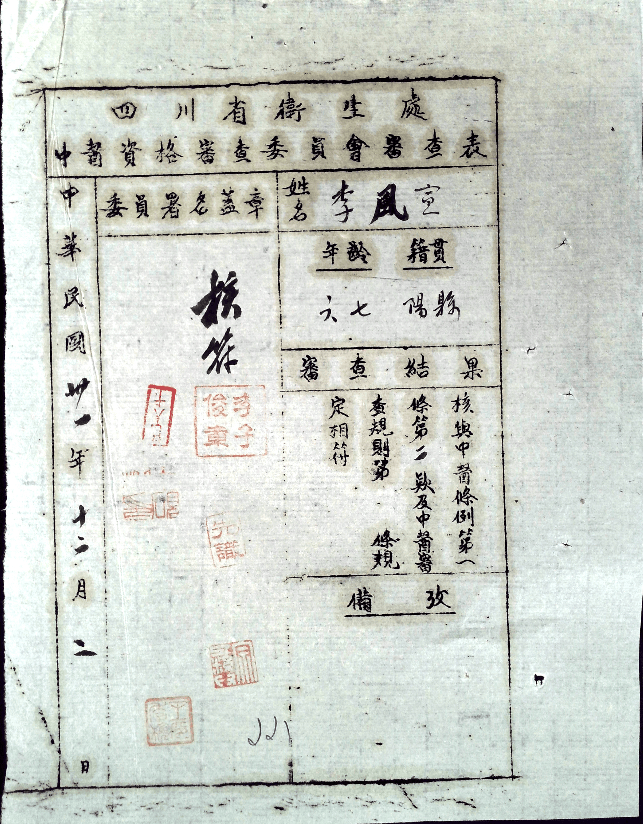 四川省衛生處
中醫資格審查委員會審查表
姓名 李風宣
籍貫 年齡
陽縣 六七
審查結果
核與中醫條例第一
條第二款及中醫審
查規則第 條規
定相符
備攷
委員署名蓋章
核符
李子俊章
中華民國卅一年十二月二日